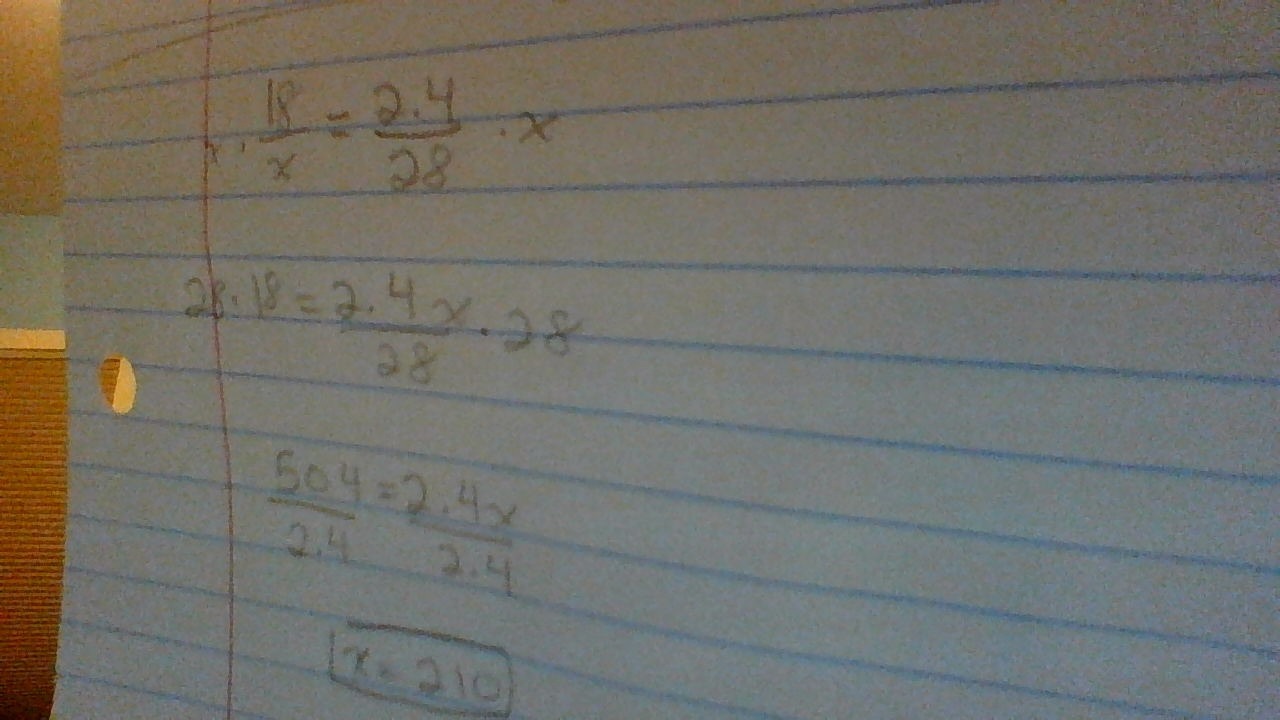 x · 18/x = 2.4/28 · x
28 · 18 = 2.4x/28 · 28
504/2.4 = 2.4x/2.4
x = 210